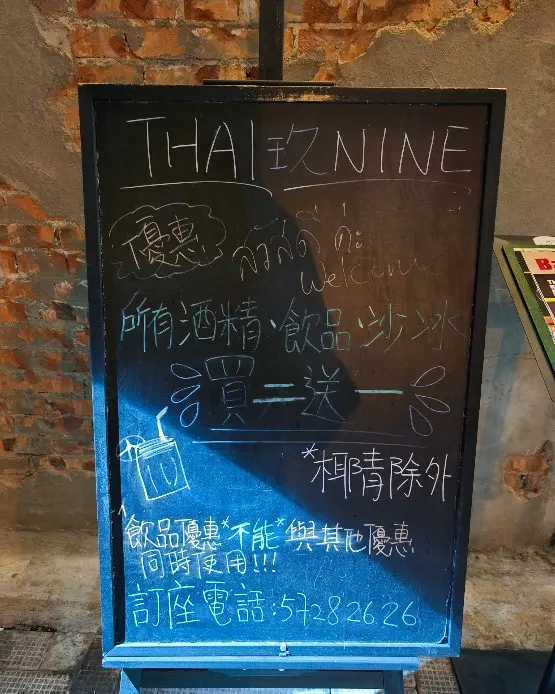 THAI 玖 NINE
優惠
สวัสดี ค่ะ
welcome
所有酒精、飲品、沙冰
買二送一
*椰青除外
飲品優惠*不能*與其他優惠
同時使用!!!
訂座電話:57282626